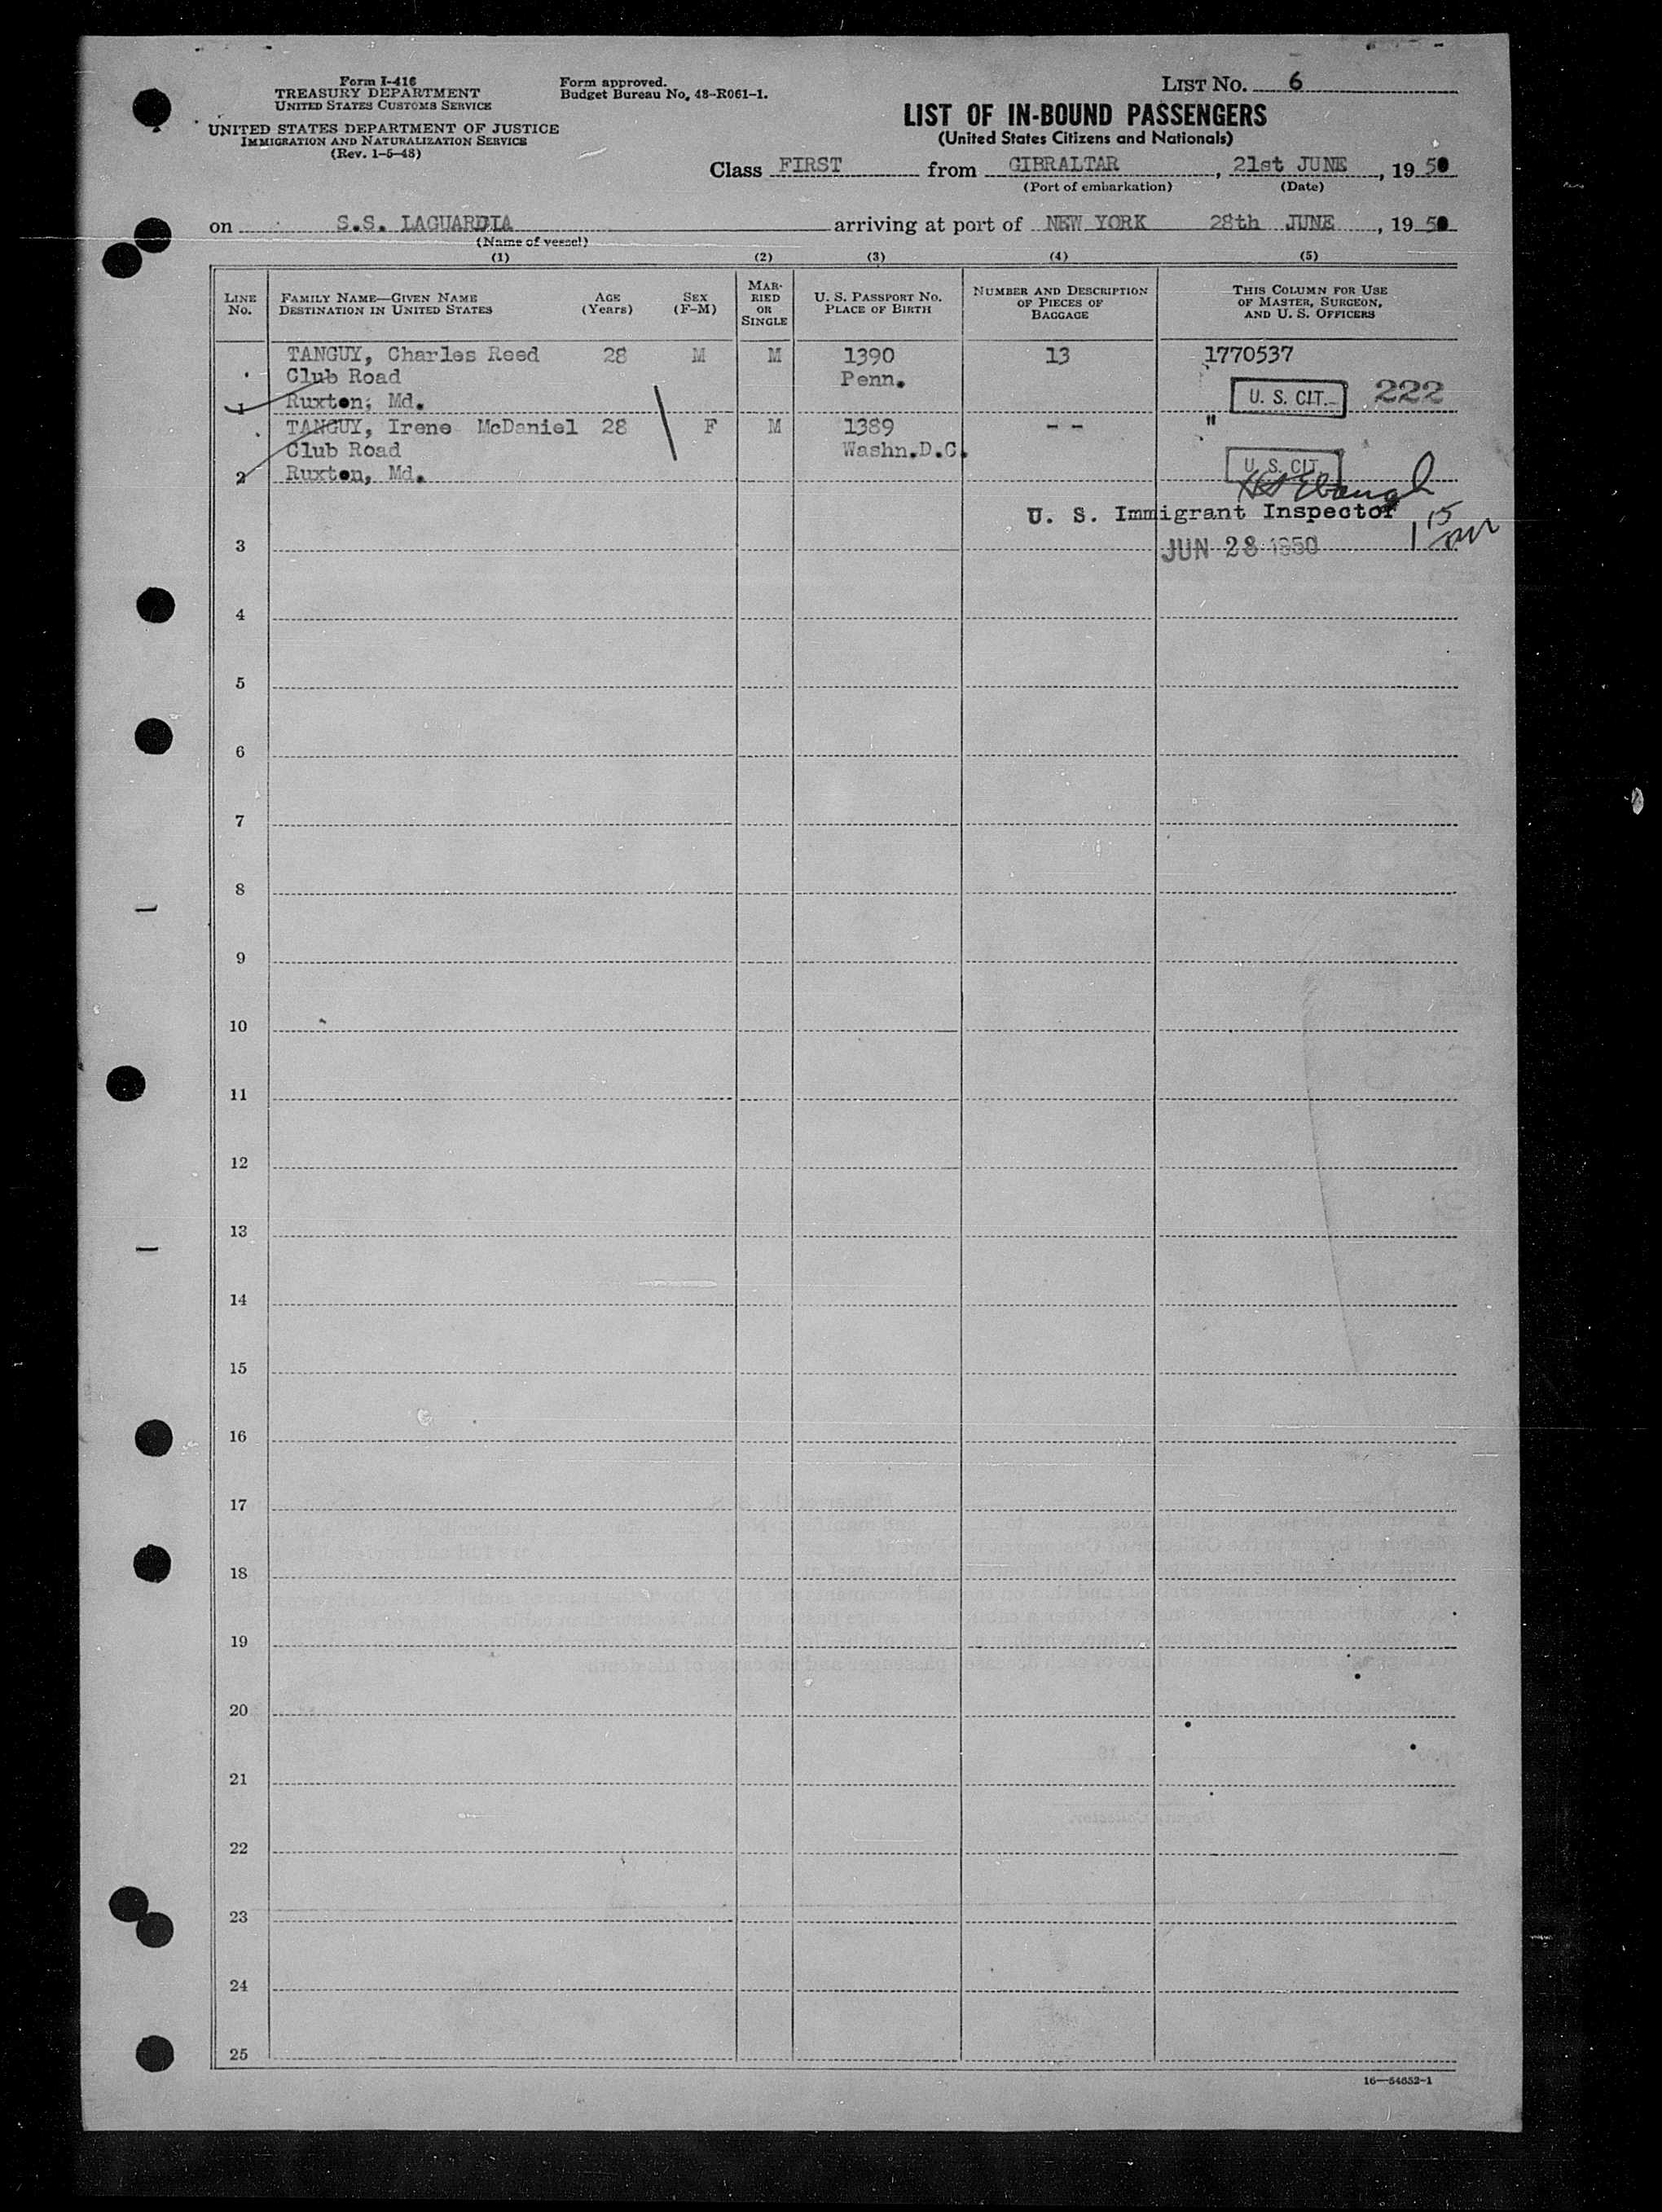 Form I-416
TREASURY DEPARTMENT
UNITED STATES CUSTOMS SERVICE
UNITED STATES DEPARTMENT OF JUSTICE
IMMIGRATION AND NATURALIZATION SERVICE
(Rev. 1-5-48)
Form approved.
Budget Bureau No. 48-R061-1.
LIST No. 6
LIST OF IN-BOUND PASSENGERS
(United States Citizens and Nationals)
Class FIRST from GIBRALTAR, 21st JUNE, 1950
(Port of embarkation) (Date)
on S.S. LAGUARDIA arriving at port of NEW YORK 28th JUNE, 1950
(Name of vessel)
(1) (2) (3) (4) (5)
LINE No.
FAMILY NAME—GIVEN NAME
DESTINATION IN UNITED STATES
AGE (Years)
SEX (F-M)
MARRIED OR SINGLE
U. S. PASSPORT No.
PLACE OF BIRTH
NUMBER AND DESCRIPTION OF PIECES OF BAGGAGE
THIS COLUMN FOR USE OF MASTER, SURGEON, AND U. S. OFFICERS
TANGUY, Charles Reed 28 M M 1390 13 1770537
Club Road Penn.
1 Ruxton, Md. U. S. CIT. 222
TANGUY, Irene McDaniel 28 F M 1389 -- "
Club Road Washn.D.C.
2 Ruxton, Md. U. S. CIT.
U. S. Immigrant Inspector
3 JUN 28 1950
4
5
6
7
8
9
10
11
12
13
14
15
16
17
18
19
20
21
22
23
24
25
16—54652-1